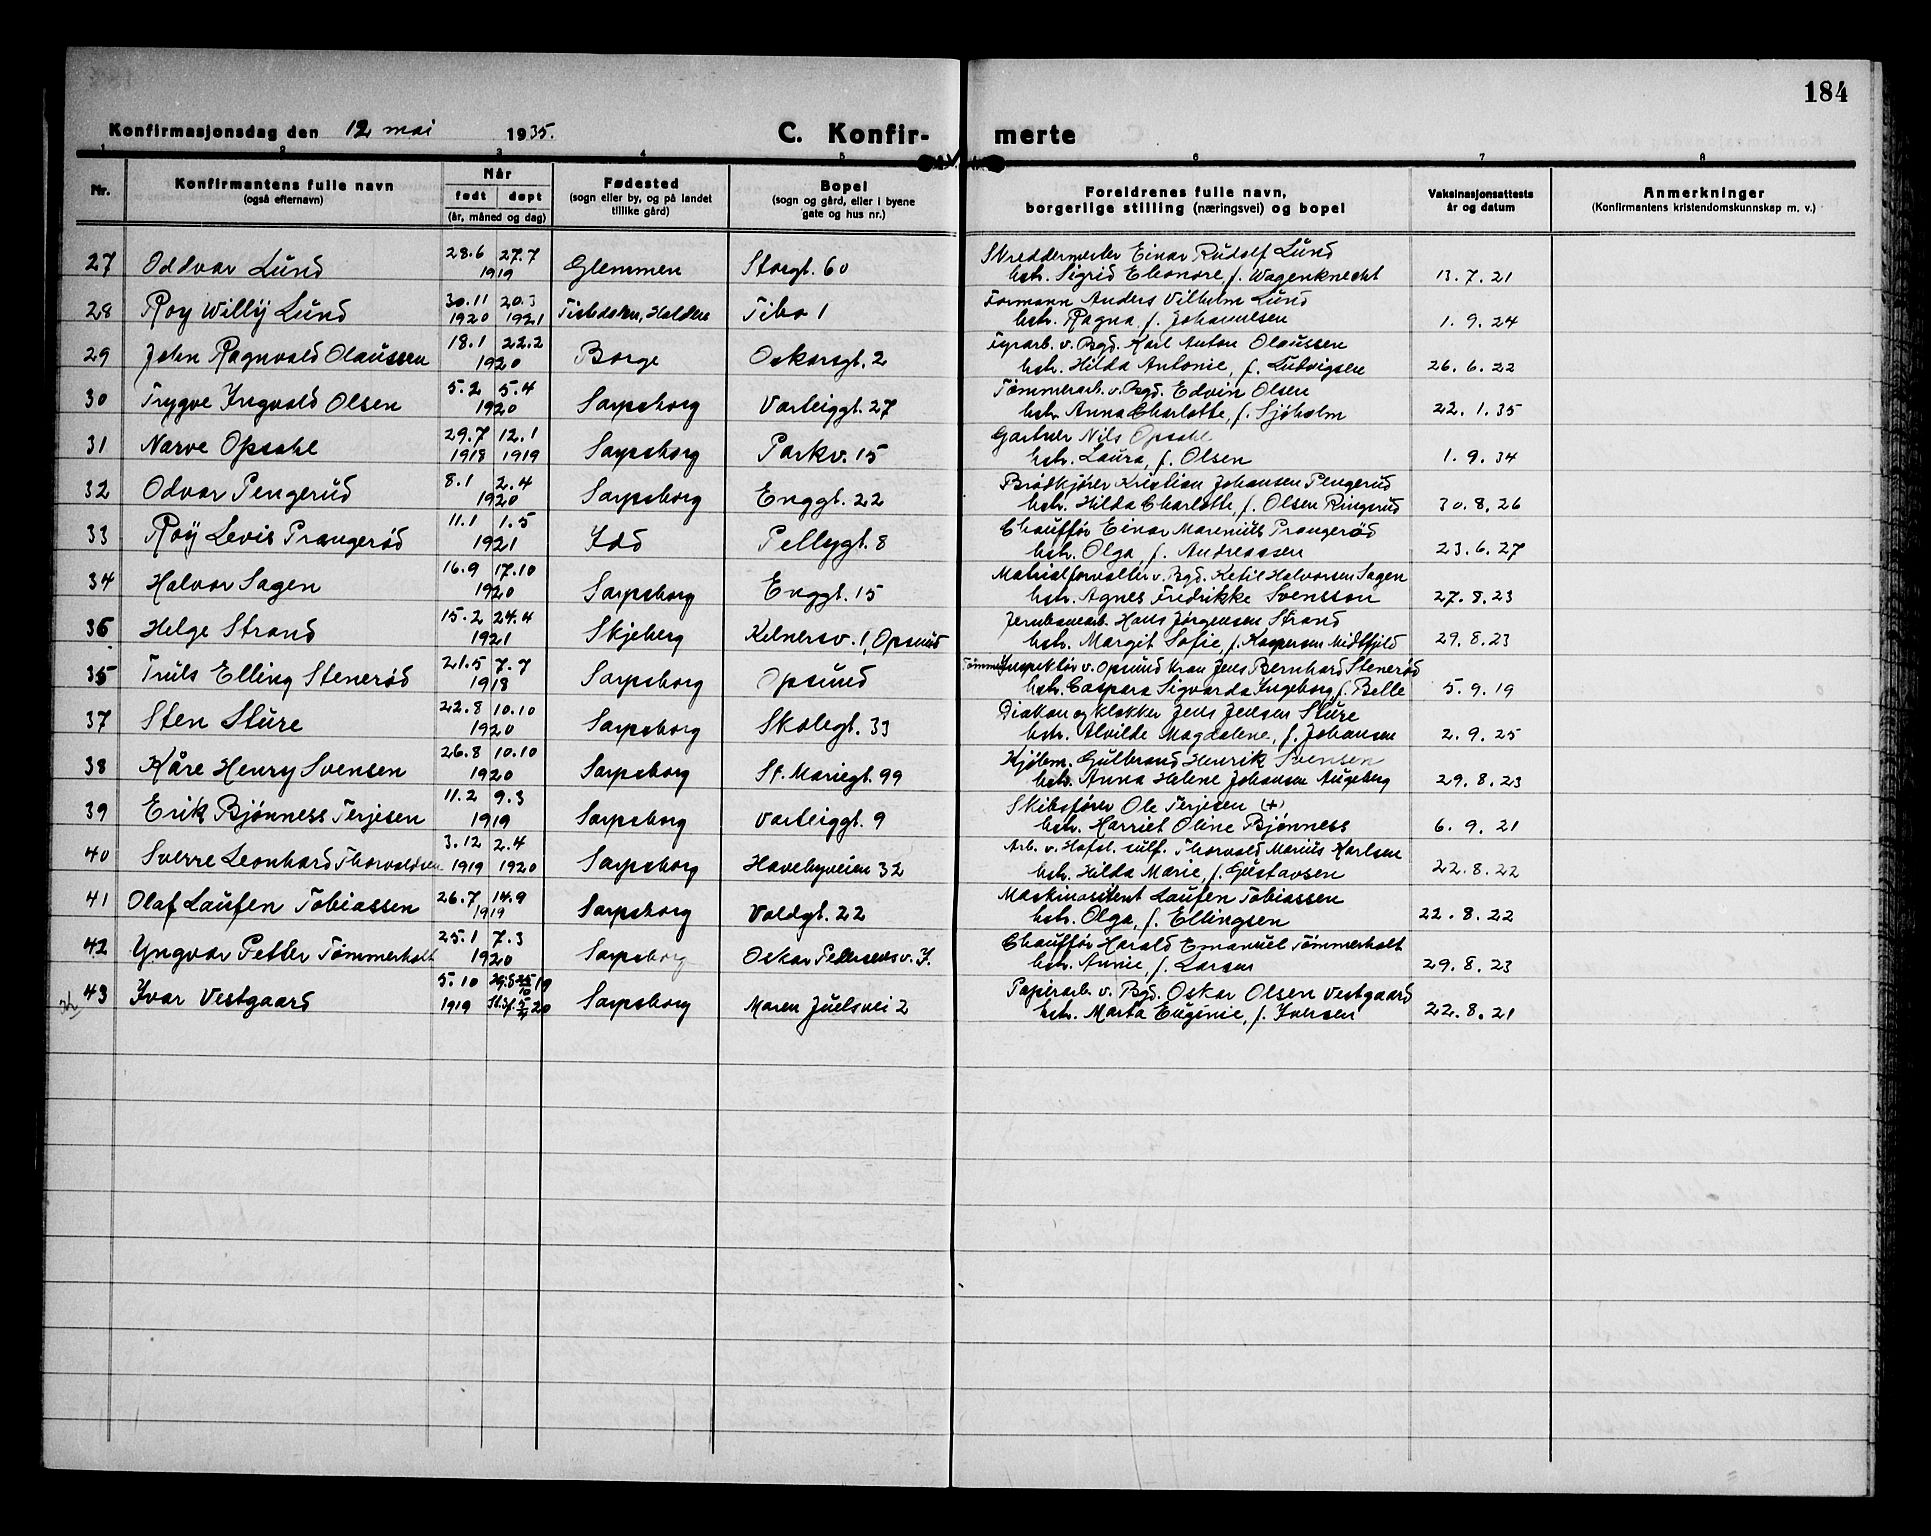 184
Konfirmasjonsdag den 12 mai 1935.
C. Konfir- merte
1 2 3 4 5 6 7 8
Nr.
Konfirmantens fulle navn
(også efternavn)
Når
født døpt
(år, måned og dag)
Fødested
(sogn eller by, og på landet
tillike gård)
Bopel
(sogn og gård, eller i byene
gate og hus nr.)
Foreldrenes fulle navn,
borgerlige stilling (næringsvei) og bopel
Vaksinasjonsattests
år og datum
Anmerkninger
(Konfirmantens kristendomskunnskap m. v.)
28.6 27.7 Skreddermester Einar Rudolf Lund
27 Oddvar Lund 1919 Glemmen Storgt. 60 hstr. Sigrid Eleonore f. Wagenknecht 13.7.21
30.11 20.3 Formann Anders Vilhelm Lund
28 Roy Willy Lund 1920 1921 Tistedalen, Halden Tibo 1 hstr. Ragna f. Johannesen 1.9.24
18.1 22.2 Fyrarb. v. Bgd. Karl Anton Olaussen
29 John Ragnvald Olaussen 1920 Borge Oskarsgt. 2 hstr. Hilda Antonie, f. Ludvigsen 26.6.22
5.2 5.4 Tømmerarb. v. Bgd. Edvin Olsen
30 Trygve Yngvald Olsen 1920 Sarpsborg Varteiggt. 27 hstr. Anna Charlotte, f. Sjøholm 22.1.35
29.7 12.1 Gartner Nils Opsahl
31 Narve Opsahl 1918 1919 Sarpsborg Parkv. 15 hstr. Laura, f. Olsen 1.9.34
8.1 2.4 Brødkjører Kristian Johansen Pengerud
32 Odvar Pengerud 1920 Sarpsborg Enggt. 22 hstr. Hilda Charlotte, f. Olsen Ringerud 30.8.26
11.1 1.5 Chauffør Einar Marenius Prangerød
33 Roy Levis Prangerød 1921 Idd Pellygt. 8 hstr. Olga f. Andreassen 23.6.27
16.9 17.10 Matrialforvalter v. Bgd. Ketil Halvorsen Sagen
34 Halvor Sagen 1920 Sarpsborg Enggt. 15 hstr. Agnes Fredrikke Svensson 27.8.23
15.2 24.4 Jernbanearb. Hans Jørgensen Strand
36 Helge Strand 1921 Skjeberg Kelnersv. 1, Opsund hstr. Margit Sofie, f. Kaspersen Midtfjeld 29.8.23
21.5 7.7 Tømmerinspektør v. Opsund Kran Jens Bernhard Stenerød
35 Truls Elling Stenerød 1918 Sarpsborg Opsund hstr. Caspara Sigvarda Ingeborg f. Belle 5.9.19
22.8 10.10 Diakon og klokker Jens Jensen Sture
37 Sten Sture 1920 Sarpsborg Skolegt. 33 hstr. Alvilde Magdalene, f. Johansen 2.9.25
26.8 10.10 Kjøbm. Gulbrand Henrik Svensen
38 Kåre Henry Svensen 1920 Sarpsborg St. Mariegt. 99 hstr. Anna Helene Johansen Augeberg 29.8.23
11.2 9.3 Skibsfører Ole Terjesen (+)
39 Erik Bjønness Terjesen 1919 Sarpsborg Varteiggt. 9 hstr. Harriet Oline Bjønness 6.9.21
3.12 2.4 Arb. v. Hafsl. sulf. Thorvald Marius Karlsen
40 Sverre Leonhard Thorvaldsen 1919 1920 Sarpsborg Havebyveien 32 hstr. Hilda Marie, f. Gustavsen 22.8.22
26.7 14.9 Maskinassistent Laufen Tobiassen
41 Olaf Laufen Tobiassen 1919 Sarpsborg Voldgt. 22 hstr. Olga, f. Ellingsen 22.8.22
25.1 7.3 Chauffør Harald Emanuel Tømmerholt
42 Yngvar Petter Tømmerholt 1920 Sarpsborg Oskar Pedersensv. 7. hstr. Annie, f. Larsen 29.8.23
5.10 Papirarb. v. Bgd. Oskar Olsen Vestgaard
43 Ivar Vestgaard 1919 20 Sarpsborg Maren Juelsvei 2 hstr. Marta Eugenie, f. Iversen 22.8.21